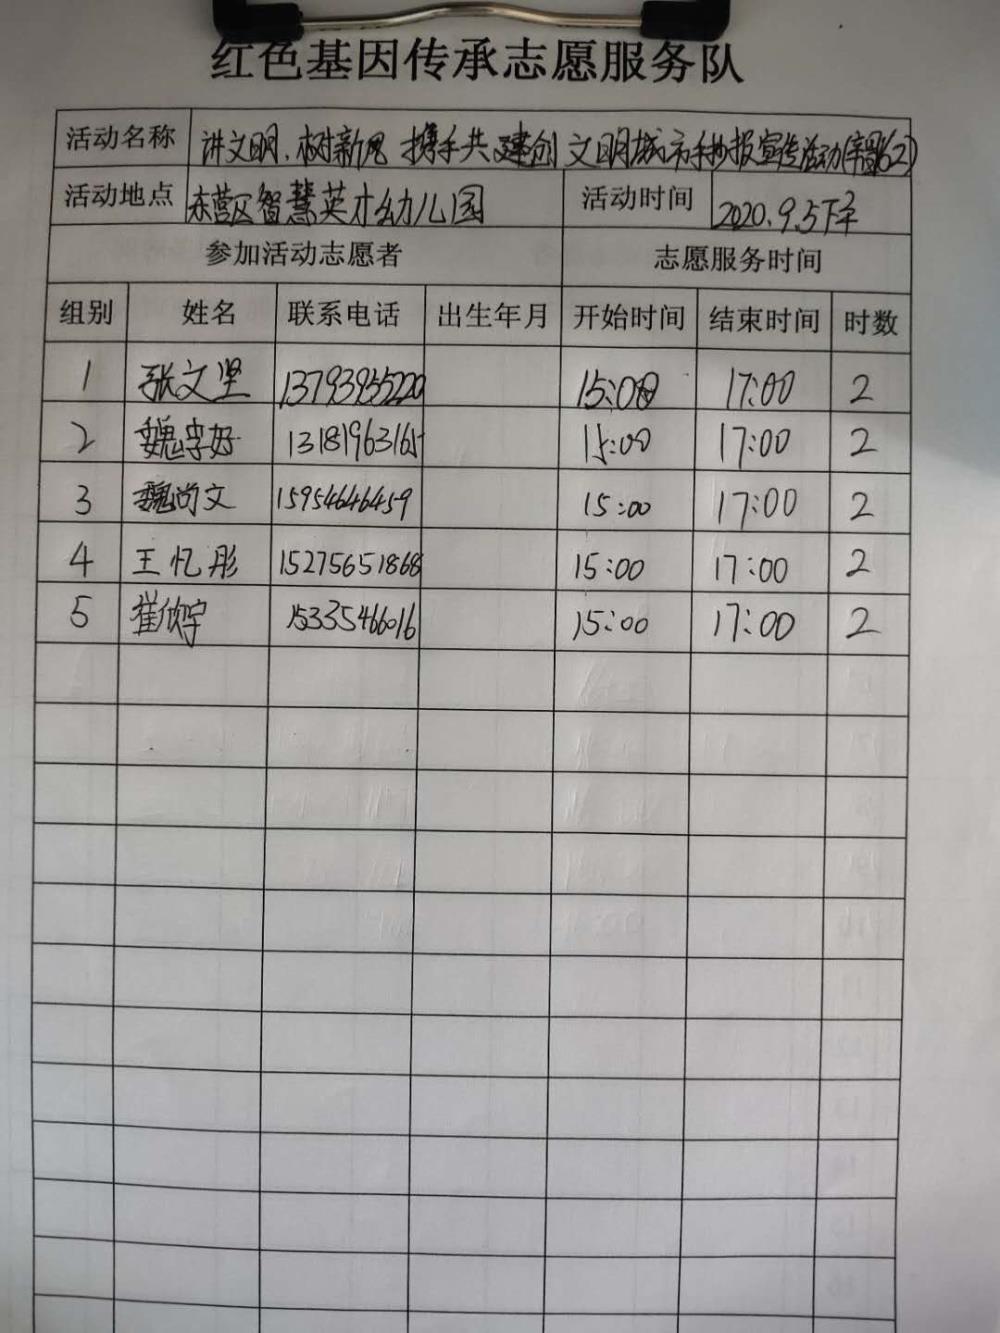 红色基因传承志愿服务队
活动名称 讲文明、树新风 携手共建创文明城市手抄报宣传活动
活动地点 东营区智慧英才幼儿园 活动时间 2020.9.5下午
参加活动志愿者 志愿服务时间
组别 姓名 联系电话 出生年月 开始时间 结束时间 时数
1 张文坚 13793955220 15:00 17:00 2
2 魏宇好 13181963165 15:00 17:00 2
3 魏尚文 15954646459 15:00 17:00 2
4 王忆彤 15275651868 15:00 17:00 2
5 崔欣宇 15335466016 15:00 17:00 2